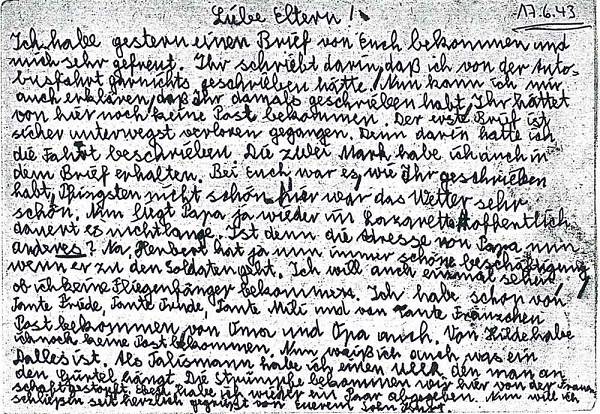 Liebe Eltern!
17.6.43
Ich habe gestern einen Brief von Euch bekommen und
mich sehr gefreut. Ihr schriebt darin, daß ich von der Auto-
busfahrt garnichts geschrieben hätte. Nun kann ich mir
auch erklären, daß Ihr damals geschrieben habt, Ihr hättet
von hier noch keine Post bekommen. Der erste Brief ist
sicher unterwegst verloren gegangen. Denn darin hatte ich
die Fahrt beschrieben. Die zwei Mark habe ich auch in
dem Brief erhalten. Bei Euch war es, wie Ihr geschrieben
habt, Pfingsten nicht schön, hier war das Wetter sehr
schön. Nun liegt Papa ja wieder im Lazarett. Hoffentlich
dauert es nicht lange. Ist denn die Adresse von Papa nun
anderes? Na, Herbert hat ja nun immer schöne Beschäftigung
wenn er zu den Soldaten geht. Ich will auch einmal sehen,
ob ich keine Fliegenfänger bekomme. Ich habe schon von
Tante Friede, Tante Trude, Tante Mili und von Tante Fränzchen
Post bekommen, von Oma und Opa auch. Von Hilde habe
ich noch keine Post bekommen. Nun weiß ich auch was ein
Dalles ist. Als Talismann habe ich einen den man an
den Gürtel hängt. Die Strümpfe bekommen wir hier von der Frauen-
schaft gestopft. Eben habe ich wieder ein Paar abgegeben. Nun will ich
schließen seit herzlich gegrüßt von Euerem Sohn